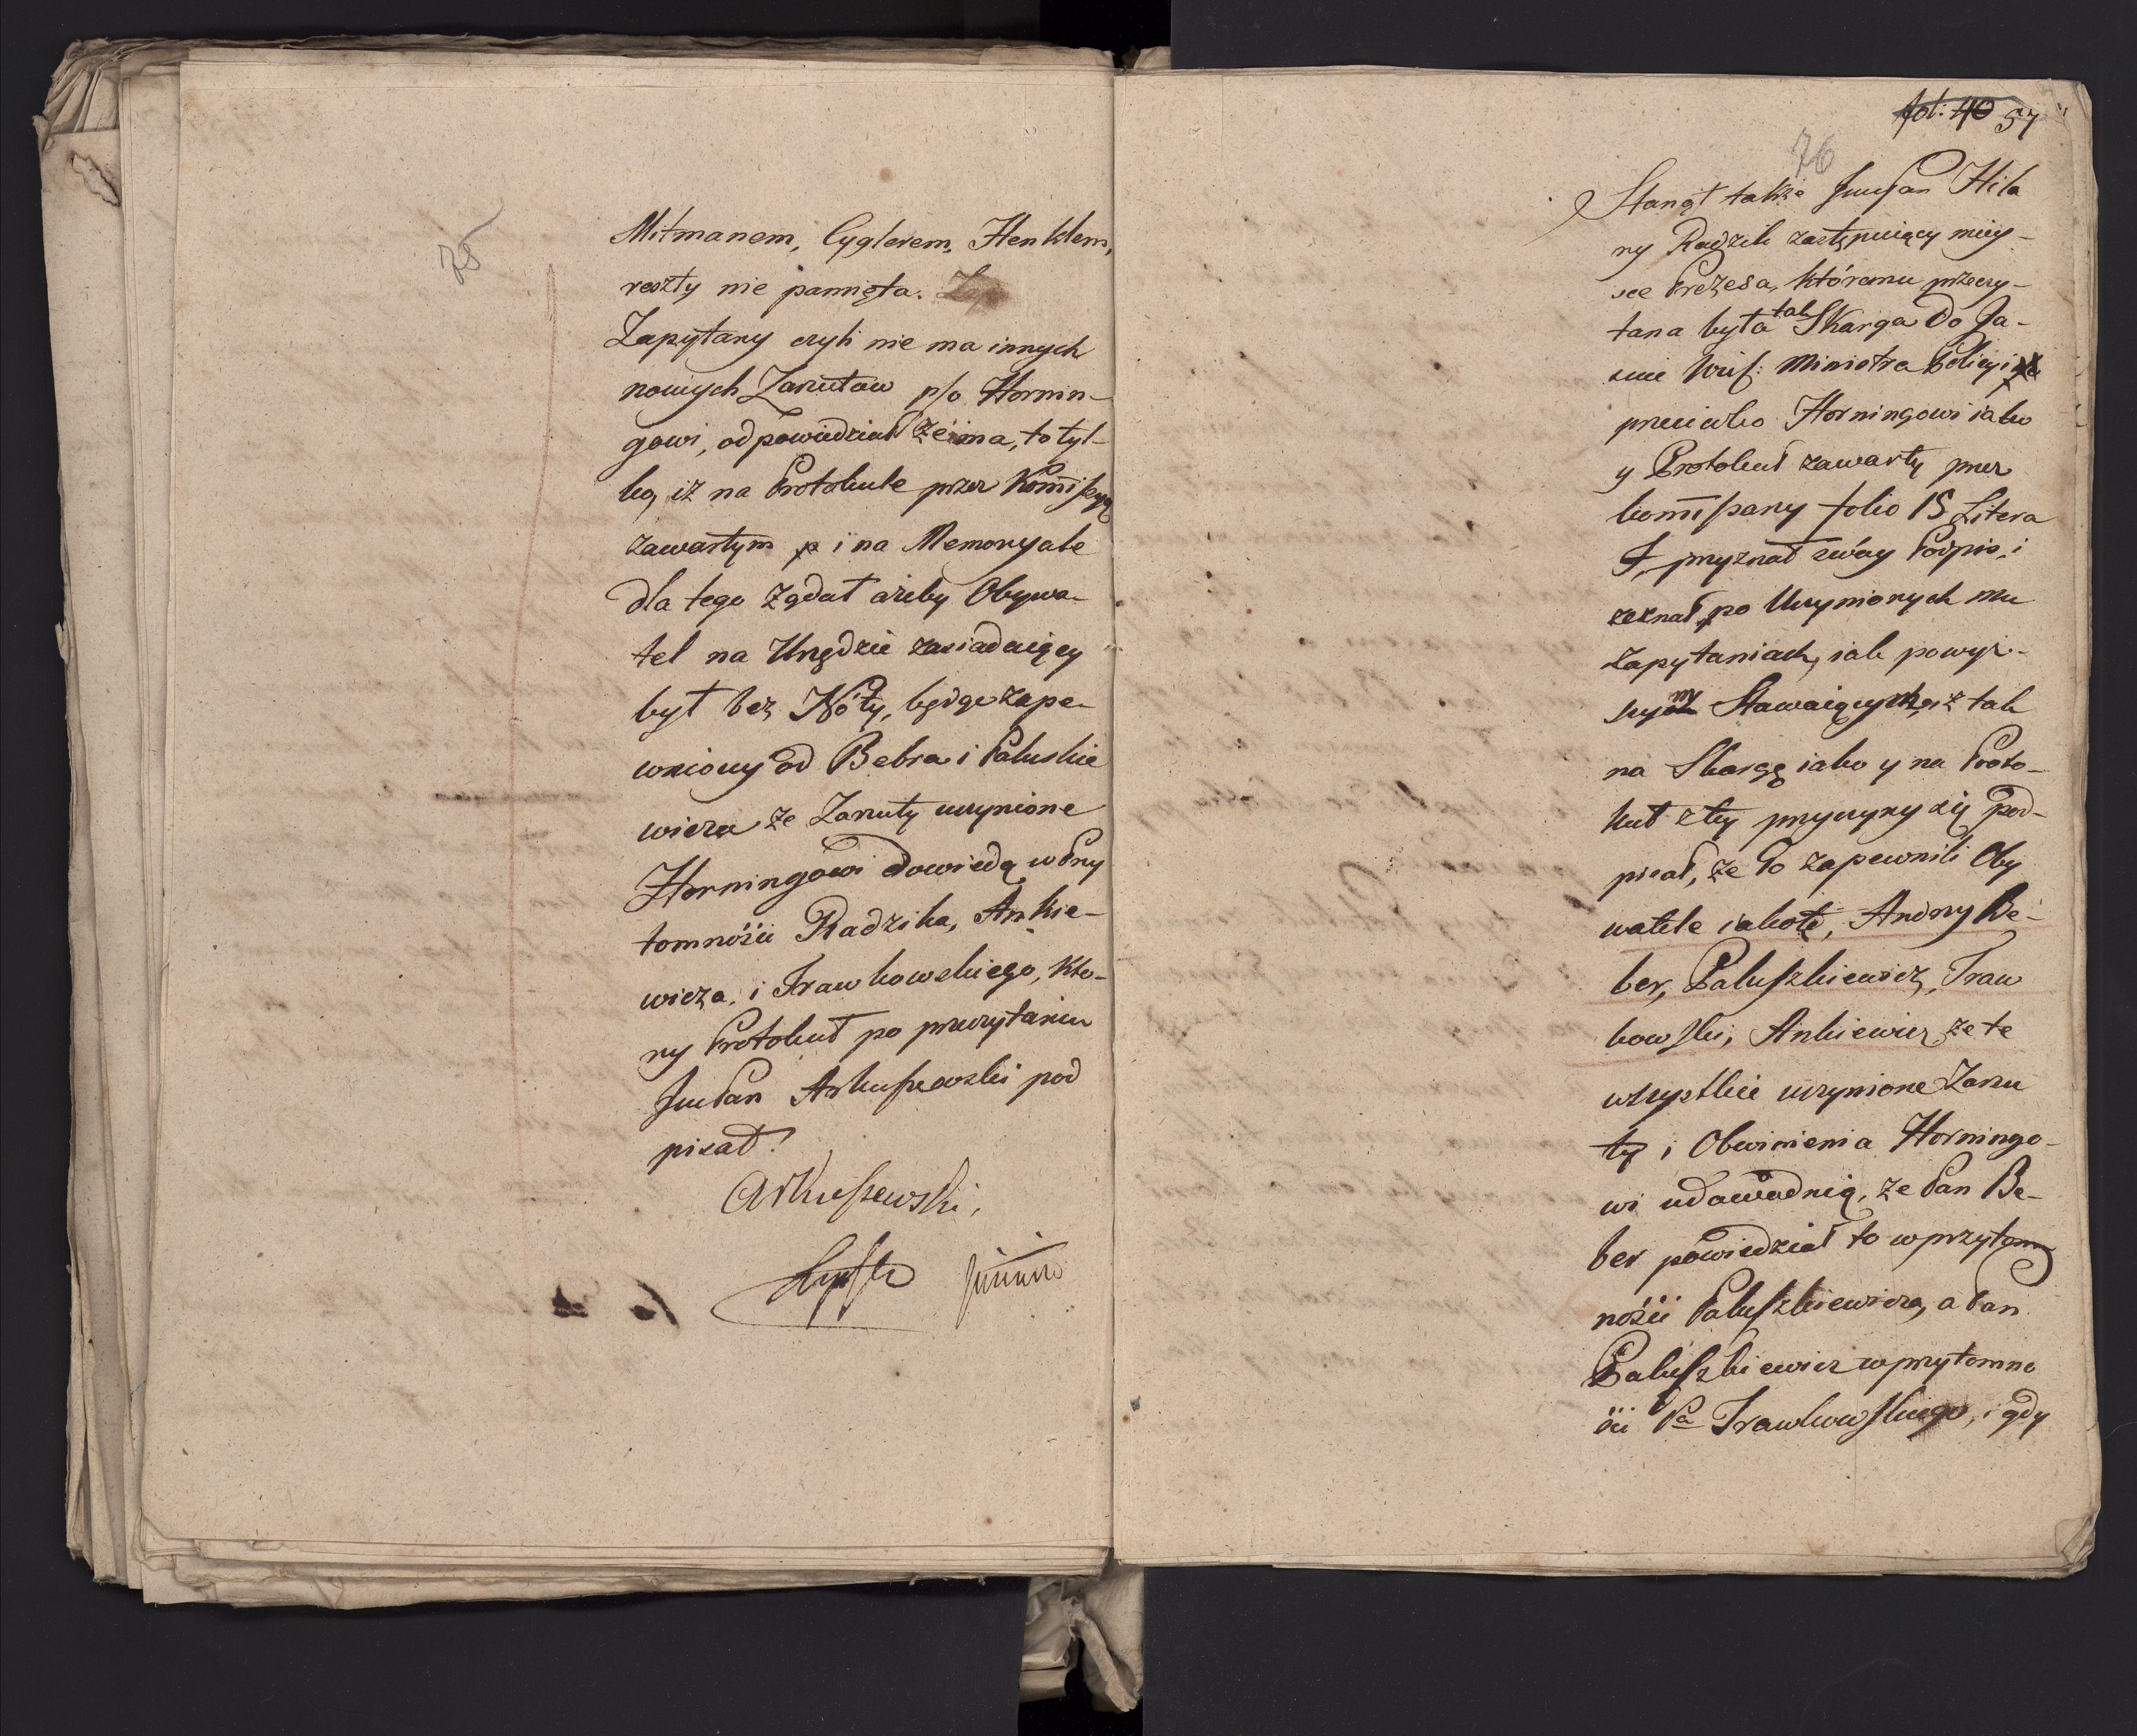 75
Mitmanem, Cyglerem, Henklem,
reszty nie pamięta. Zap
Zapytany czyli nie ma innych
nowych Zarzutow p/o Hornin-
gowi, odpowiedział że ma, to tyl-
ko, iż na Protokule przez Kommissyą
zawartym p i na Memoryale
dla tego żądał ażeby Obywa-
tel na Urzędzie zasiadaiący
był bez Noty, będąc zape-
wniony od Bebra i Paluskie
wicza że Zarzuty uczynione
Horningowi dowiedą w Przy
tomności Radzika, Ankie-
wicza, i Trawkowskiego, kto-
ry Protokuł po przeczytaniu
JmcPan Arkuszewski pod
pisał.
Arkuszewski,
fol: 40 57
76
Stanął także JmcPan Hila
ry Radzik zastępuiący miey-
sce Prezesa, któremu przeczy-
tana była tak Skarga do Ja-
śnie Ministra Policyi
przeciwko Horningowi iako
y Protokuł zawarty przez
kommissarzy folio 15 Litera
przyznał swóy Podpis, i
zeznał po Uczynionych mu
Zapytaniach, iak powyż-
szym Stawaiących, iż tak
na Skargę iako y na Proto-
kuł z tey przyczyny się pod-
pisał, że go zapewnili Oby
watele iakoto, Andrzy Be-
ber, Paluszkiewicz, Traw
kowski, Ankiewicz, że te
wszystkie uczynione Zarzu
ty i Obwinienia Horningo-
wi udowodnią, że Pan Be-
ber powiedział to w przytom
ności Paluszkiewicza, a Pan
Paluszkiewicz w przytomno
ści Pa Trawkowskiego, i gdy